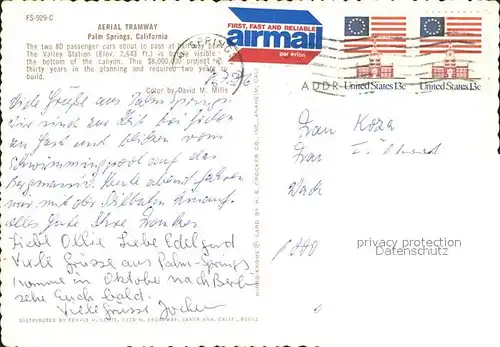 FS-929-C
AERIAL TRAMWAY
Palm Springs, California
The two 80 passenger cars about to pass at
The Valley Station (Elev. 2,643 ft.) is visible
bottom of the canyon. This $8,000,000 project
thirty years in the planning and required two years
build.
Color by David M. Mills
FIRST, FAST AND RELIABLE
airmail
par avion
United States 13c
United States 13c
ADDR
Liebe Grüße aus Palm Springs.
Wir sind zur Zeit bei
zu Gast und blicken vom
Swimmingpool auf das
Bergmassiv. Heute abend fahren
wir mit der Seilbahn hinauf.
alles Gute Ihre
Liebe Ollie Liebe Edelgard
Viele Grüsse aus Palm-Springs
komme in Oktober nach Berlin
sehe Euch bald.
Viele Grüsse Jochen
Frau
Frau I.
1000
privacy protection
Datenschutz
MIRRO-KROME ® CARD BY H. S. CROCKER CO. INC., ANAHEIM, CAL.
DISTRIBUTED BY FERRIS H. SCOTT, 1220 N. BROADWAY, SANTA ANA, CALIF.